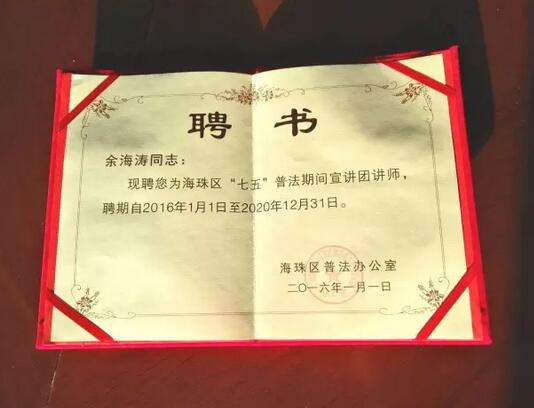 聘书
余海涛同志：
现聘您为海珠区“七五”普法期间宣讲团讲师，
聘期自2016年1月1日至2020年12月31日。
海珠区普法办公室
二〇一六年一月一日